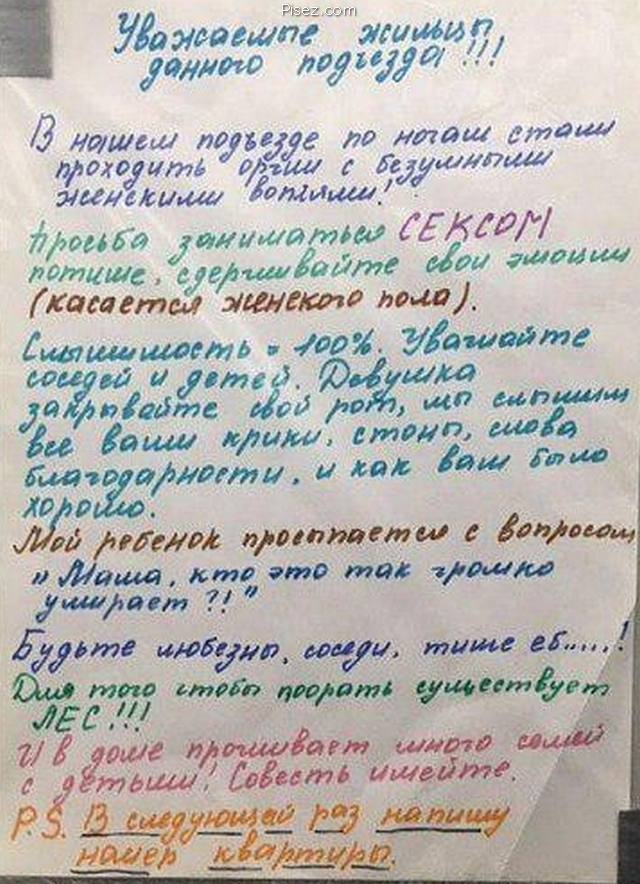 Pisez.com
Уважаемые жильцы,
данного подъезда!!!
В нашем подъезде по ночам стали
проходить оргии с безумными
женскими воплями!
Просьба заниматься СЕКСОМ
потише, сдерживайте свои эмоции
(касается женского пола).
Слышимость = 100%. Уважайте
соседей и детей. Девушка
закрывайте свой рот, мы слышим
все ваши крики, стоны, слова
благодарности, и как вам было
хорошо.
Мой ребенок просыпается с вопросом
"Мама, кто это так громко
умирает?!!"
Будьте любезны, соседи, тише еб.....!
Для того чтобы поорать существует
ЛЕС!!!
И в доме проживает много семей
с детьми! Совесть имейте.
P.S. В следующий раз напишу
номер квартиры.